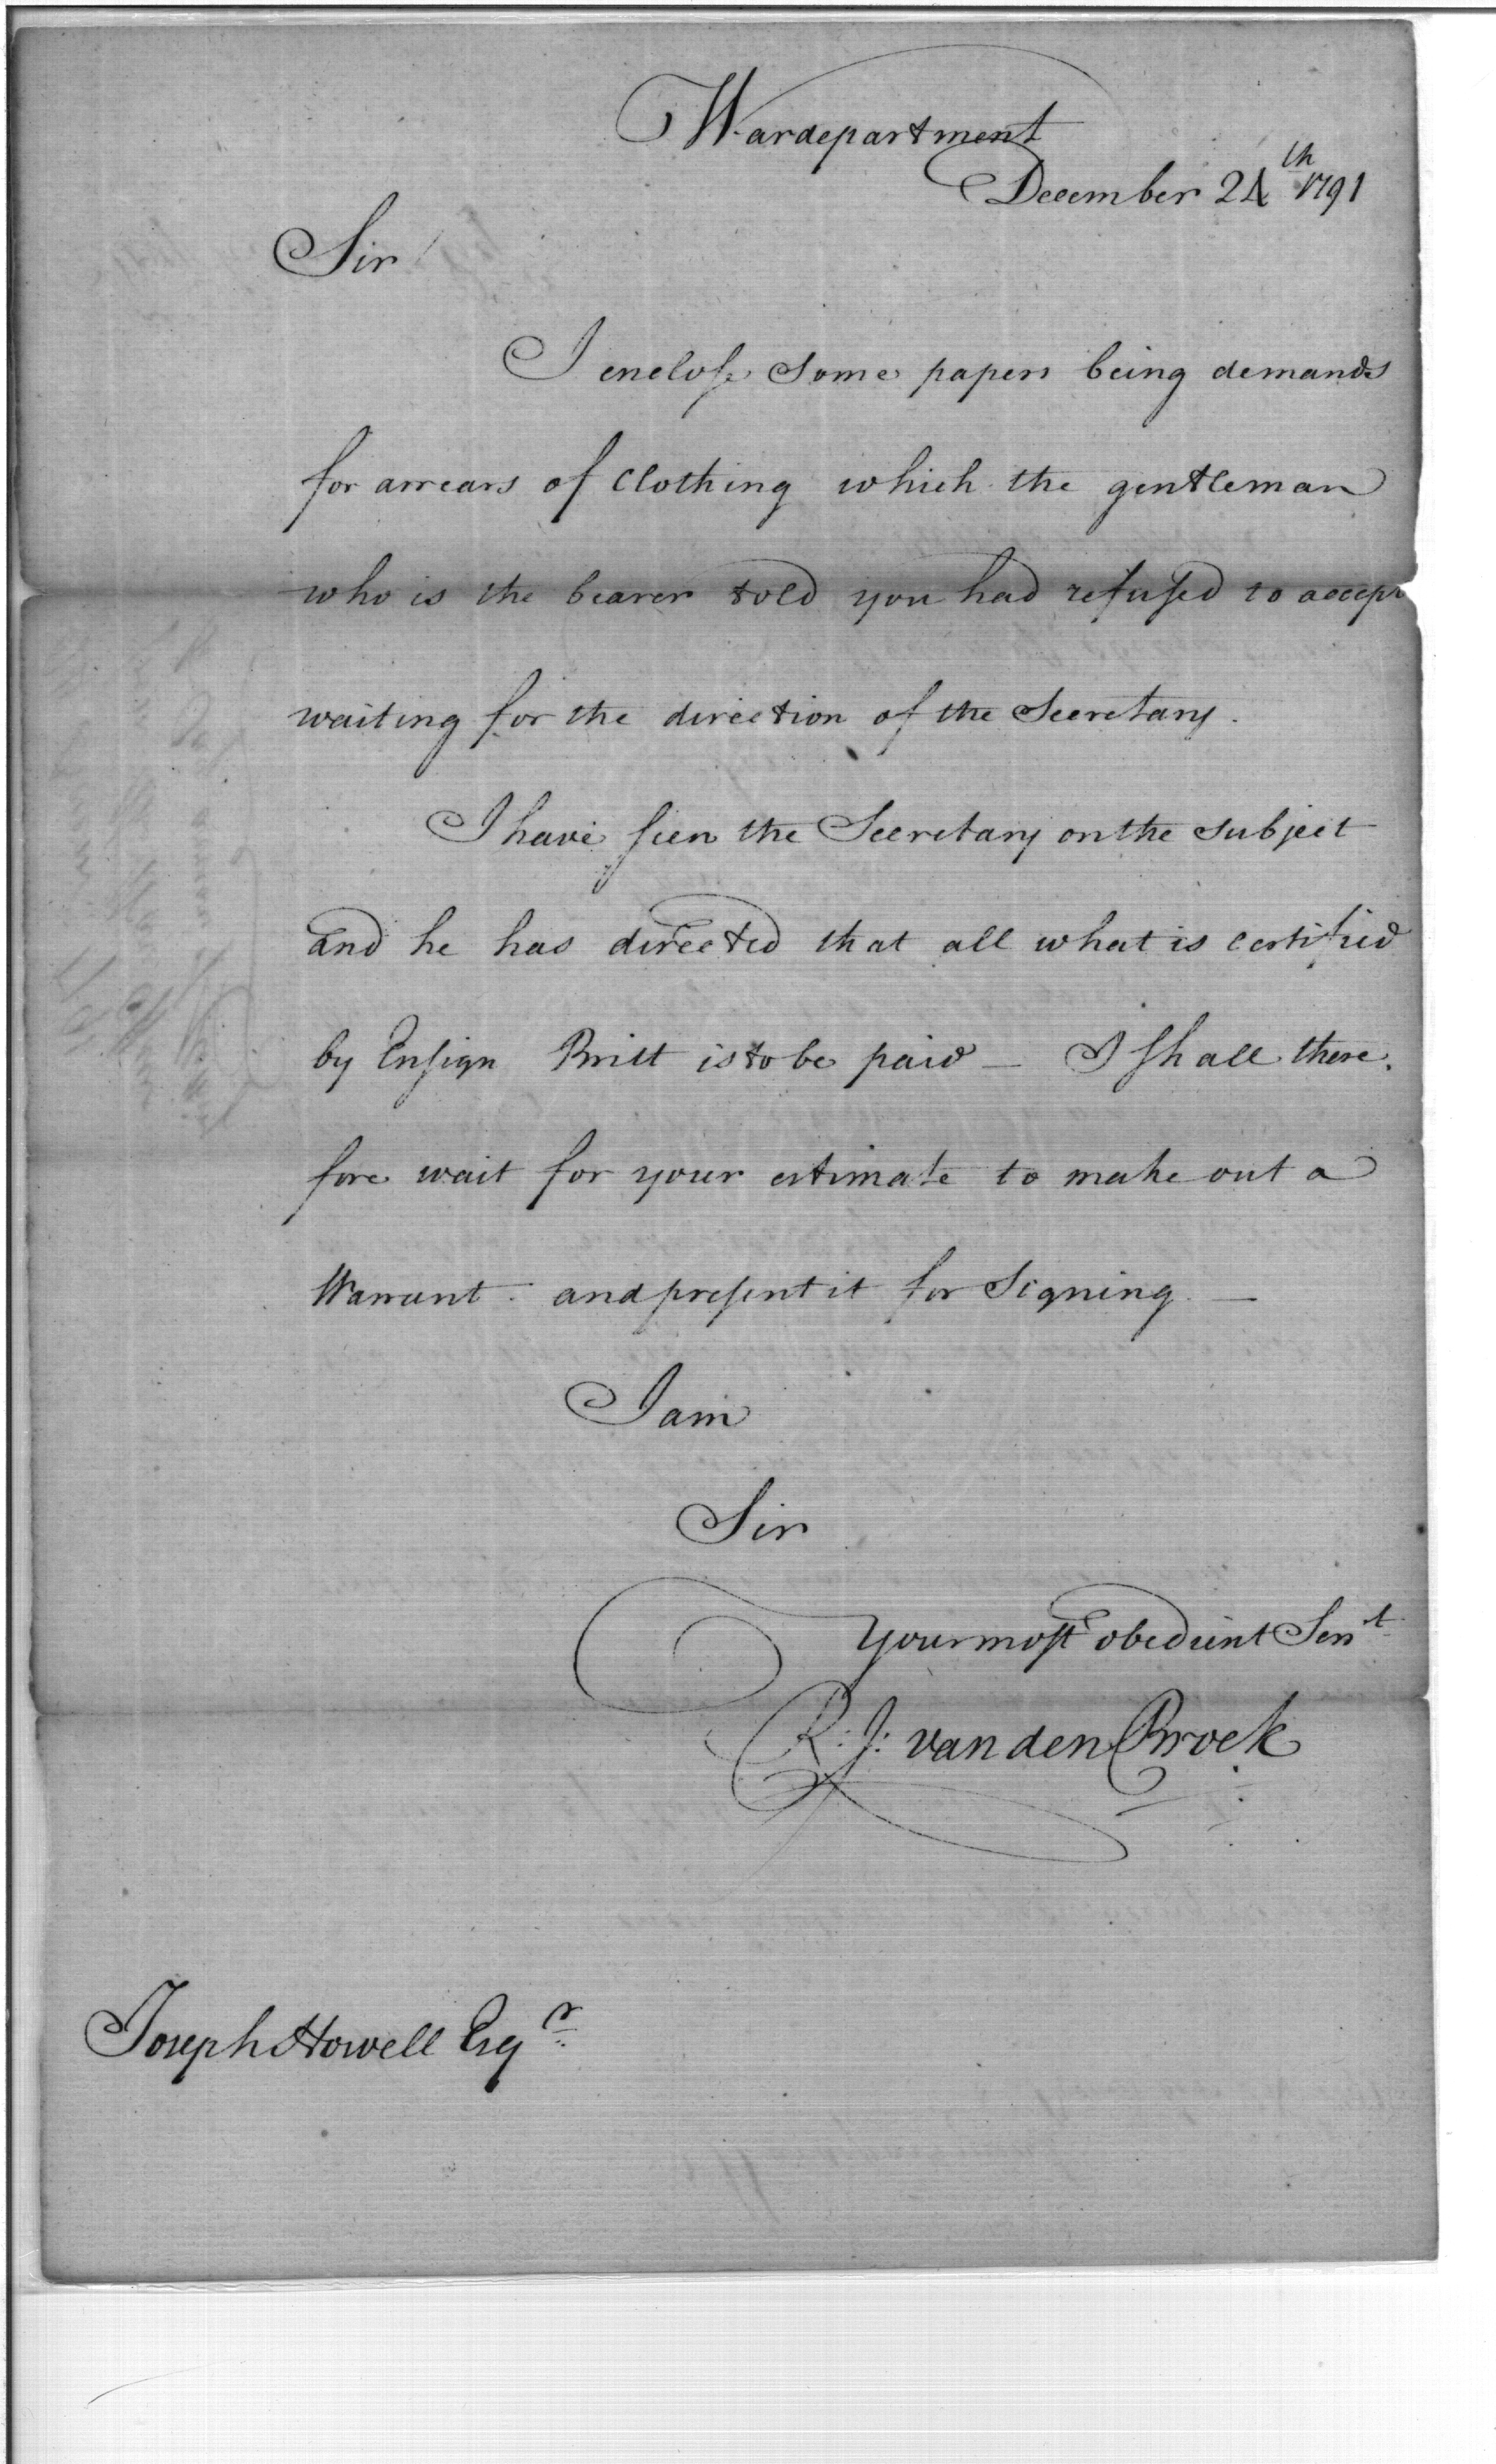 Wardepartment
December 24th 1791
Sir
I enclose some papers being demands
for arrears of Clothing which the gentleman
who is the bearer told you had refused to accept
waiting for the direction of the Secretary.
I have seen the Secretary on the subject
and he has directed that all what is certified
by Ensign Britt is to be paid — I shall there.
fore wait for your estimate to make out a
Warrant . and present it for Signing —
I am
Sir
your most obedient Servt
R: J: van den Broek
Joseph Howell Esqr